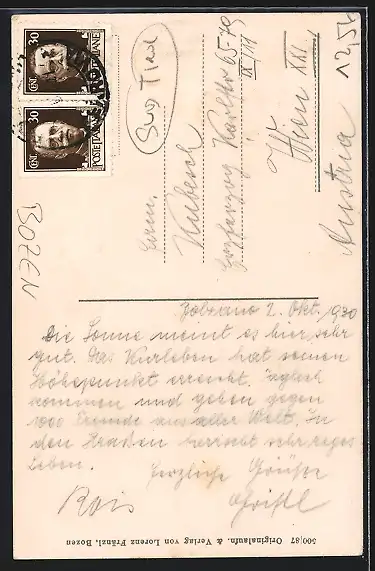 30
CENT
POSTE ITALIANE
30
CENT
POSTE ITALIANE
Süd Tirol
BOZEN
12,50
Kubesch
Erzherzog Karlstr 65-79
IX/11
Wien XXI.
Austria
Bolzano 2. Okt. 1930
Die Sonne meint es hier sehr
gut. Das Kurleben hat seinen
Höhepunkt erreicht. Täglich
kommen und gehen gegen
1000 Fremde aus aller Welt. In
den Straßen herrscht sehr reges
Leben.
Herzliche Grüße
500/87 Originalaufn. & Verlag von Lorenz Fränzl, Bozen